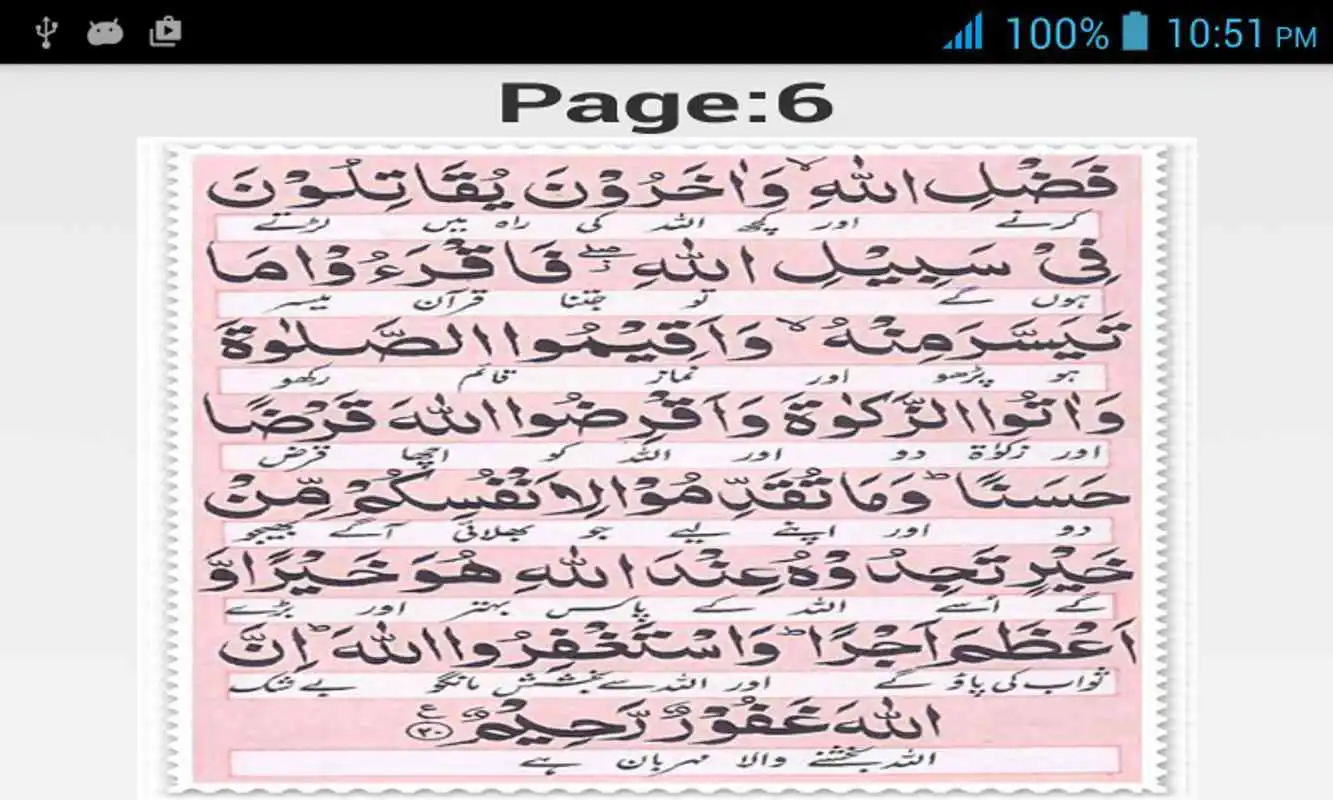 100% 10:51 PM
Page:6
فَضْلِ اللّٰهِ ۙ وَاٰخَرُوْنَ يُقَاتِلُوْنَ
کرتے اور کچھ اللہ کی راہ میں لڑتے
فِىْ سَبِيْلِ اللّٰهِ ۖ فَاقْرَءُوْا مَا
ہوں گے تو جتنا قرآن میسر
تَيَسَّرَ مِنْهُ ۙ وَاَقِيْمُوا الصَّلٰوةَ
ہو پڑھو اور نماز قائم رکھو
وَاٰتُوا الزَّكٰوةَ وَاَقْرِضُوا اللّٰهَ قَرْضًا
اور زکوٰۃ دو اور اللہ کو اچھا قرض
حَسَنًا ؕ وَمَا تُقَدِّمُوْا لِاَنْفُسِكُمْ مِّنْ
دو اور اپنے لیے جو بھلائی آگے بھیجو
خَيْرٍ تَجِدُوْهُ عِنْدَ اللّٰهِ هُوَ خَيْرًا وَّ
گے اُسے اللہ کے پاس بہتر اور بڑے
اَعْظَمَ اَجْرًا ؕ وَاسْتَغْفِرُوا اللّٰهَ ؕ اِنَّ
ثواب کی پاؤ گے اور اللہ سے بخشش مانگو بے شک
اللّٰهَ غَفُوْرٌ رَّحِيْمٌ ۲۰ ع
اللہ بخشنے والا مہربان ہے